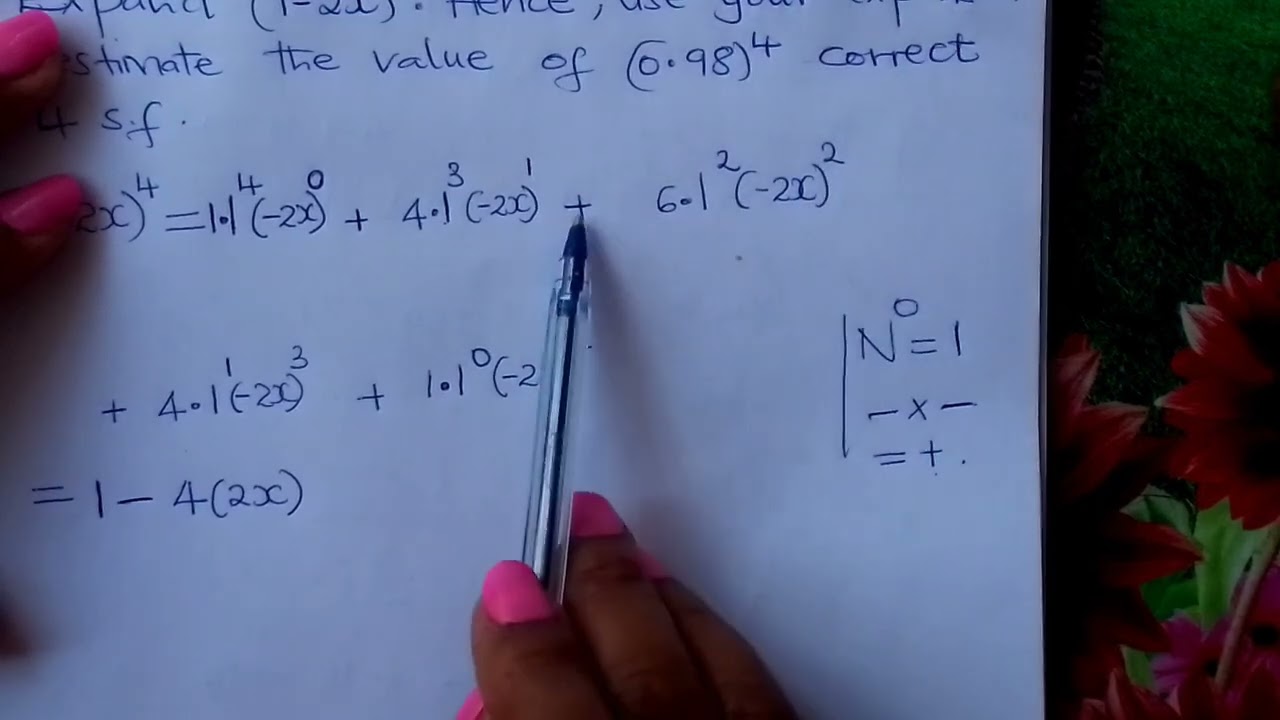 Expand (1-2x). Hence, use your
estimate the value of (0.98)⁴ correct
4 s.f.
2x)⁴ = 1.1⁴(-2x)⁰ + 4.1³(-2x)¹ + 6.1²(-2x)²
+ 4.1¹(-2x)³ + 1.1⁰(-2
N⁰ = 1
- x -
= + .
= 1 - 4(2x)